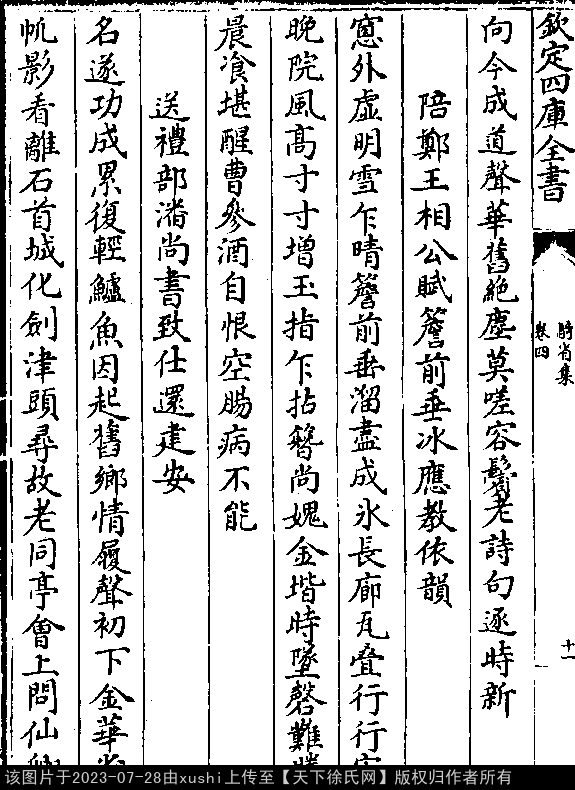 欽定四庫全書
騎省集
卷四
十一
向今成道聲華舊絶塵莫嗟容鬢老詩句逐時新
陪鄭王相公賦簷前垂冰應教依韻
窻外虚明雪乍晴簷前垂溜盡成冰長廊瓦疊行行
晚院風髙寸寸增玉指乍拈簪尚媿金堦時墜磬難
晨飡堪醒曹參酒自恨空腸病不能
送禮部潘尚書致仕還建安
名遂功成累復輕鱸魚因起舊鄉情履聲初下金華
帆影看離石首城化劍津頭尋故老同亭會上問仙
该图片于2023-07-28由xushi上传至【天下徐氏网】版权归作者所有